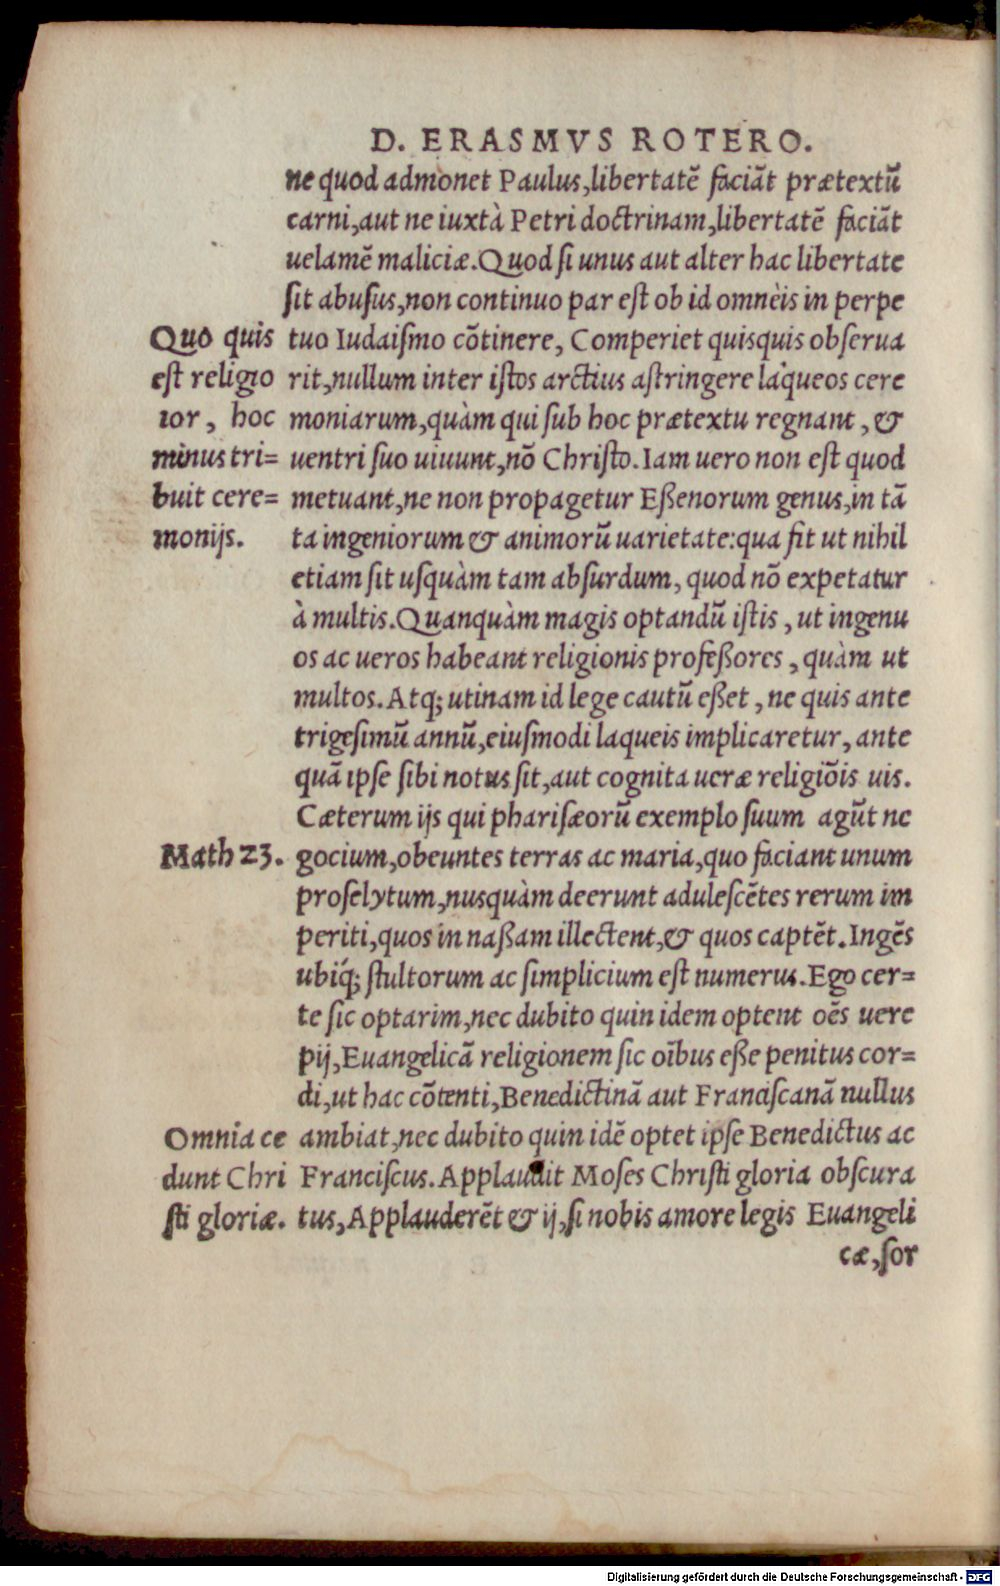 D. ERASMVS ROTERO.
ne quod admonet Paulus, libertatē faciāt prætextū
carni, aut ne iuxtà Petri doctrinam, libertatē faciāt
uelamē maliciæ. Quod ſi unus aut alter hac libertate
ſit abuſus, non continuo par eſt ob id omnèis in perpe
tuo Iudaiſmo cōtinere, Comperiet quisquis obſerua
rit, nullum inter iſtos arctius aſtringere laqueos cere
moniarum, quàm qui ſub hoc prætextu regnant, &
uentri ſuo uiuunt, nō Chriſto. Iam uero non eſt quod
metuant, ne non propagetur Eßenorum genus, in tā
ta ingeniorum & animorū uarietate: qua fit ut nihil
etiam ſit uſquàm tam abſurdum, quod nō expetatur
à multis. Quanquàm magis optandū iſtis, ut ingenu
os ac ueros habeant religionis profeßores, quàm ut
multos. Atq; utinam id lege cautū eßet, ne quis ante
trigeſimū annū, eiuſmodi laqueis implicaretur, ante
quā ipſe ſibi notus ſit, aut cognita ueræ religiōis uis.
Cæterum ijs qui phariſæorū exemplo ſuum agūt ne
gocium, obeuntes terras ac maria, quo faciant unum
proſelytum, nusquàm deerunt aduleſcētes rerum im
periti, quos in naßam illectent, & quos captēt. Ingēs
ubiq́; ſtultorum ac ſimplicium eſt numerus. Ego cer=
te ſic optarim, nec dubito quin idem optent oēs uere
pij, Euangelicā religionem ſic oībus eße penitus cor=
di, ut hac cōtenti, Benedictinā aut Franciſcanā nullus
ambiat, nec dubito quin idē optet ipſe Benedictus ac
Franciſcus. Applaudit Moſes Chriſti gloria obſcura
tus, Applauderēt & ij, ſi nobis amore legis Euangeli
cæ, ſor
Quo quis
eſt religio
ior, hoc
minus tri=
buit cere=
monijs.
Math 23.
Omnia ce
dunt Chri
ſti gloriæ.
Digitalisierung gefördert durch die Deutsche Forschungsgemeinschaft - DFG